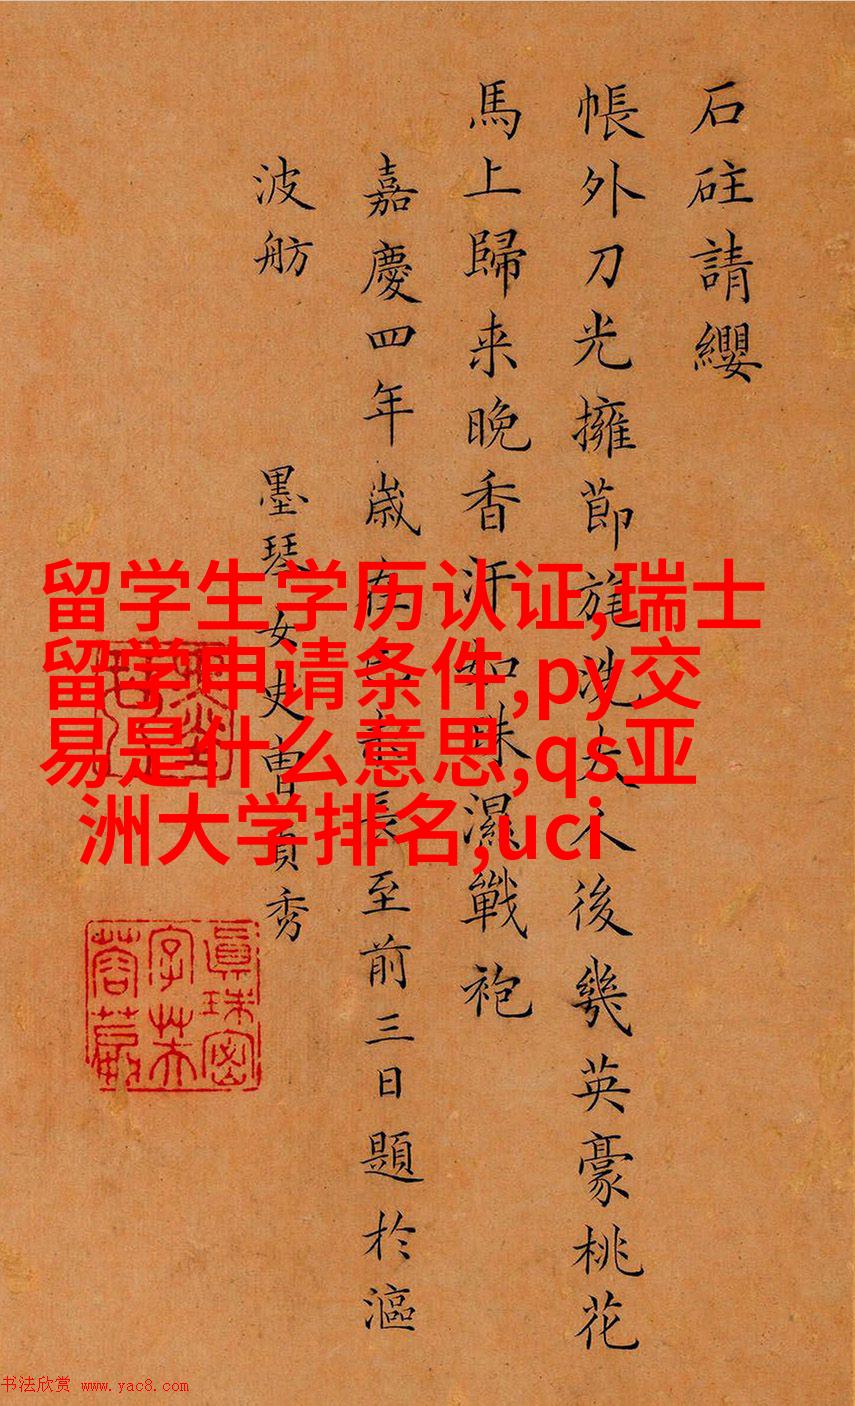 石砫請纓
帳外刀光擁節旄洗夫人後幾英豪桃花
馬上歸来晚香汗如珠濕戰袍
嘉慶四年歲在己未長至前三日題於漚
波舫
墨琴女史曹貞秀
留学生学历认证,瑞士
留学申请条件,py交
易是什么意思,qs亚
洲大学排名,uci
书法欣赏 www.yac8.com